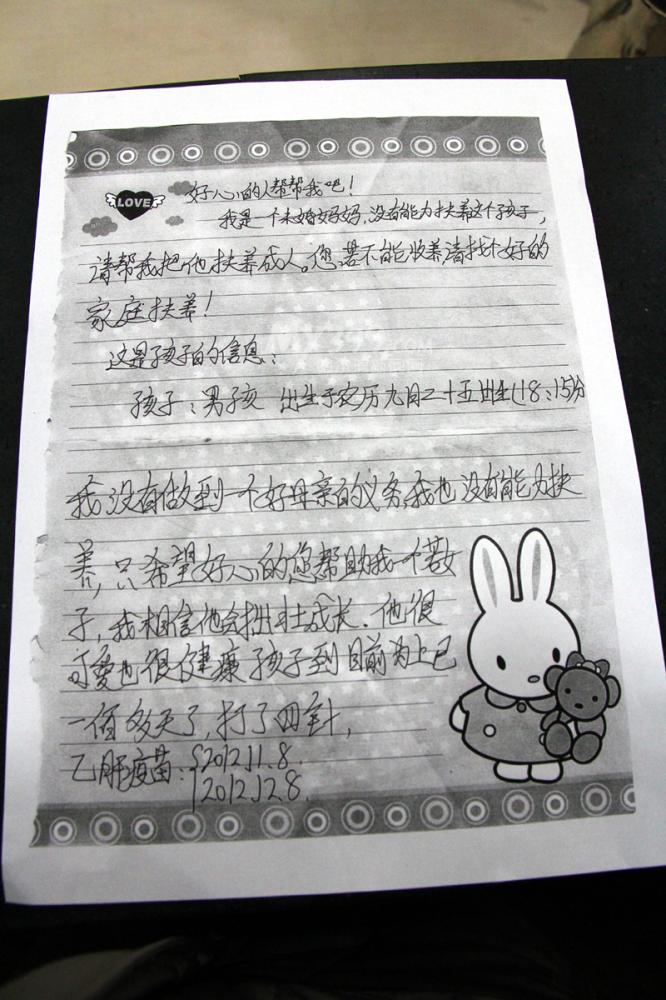 LOVE
好心的人帮帮我吧！
我是一个未婚妈妈，没有能力扶养这个孩子，
请帮我把他扶养成人。您若不能收养请找个好的
家庭扶养！
这是孩子的信息：
孩子：男孩 出生于农历九月二十五出生(18：15分
我没有做到一个好母亲的义务，我也没有能力扶
养，只希望好心的您帮助我一个
子，我相信他会茁壮成长．他很
可爱也很健康 孩子到目前为止已
一佰多天了，打了四针，
乙肝疫苗：2012.11.8.
2012.12.8.